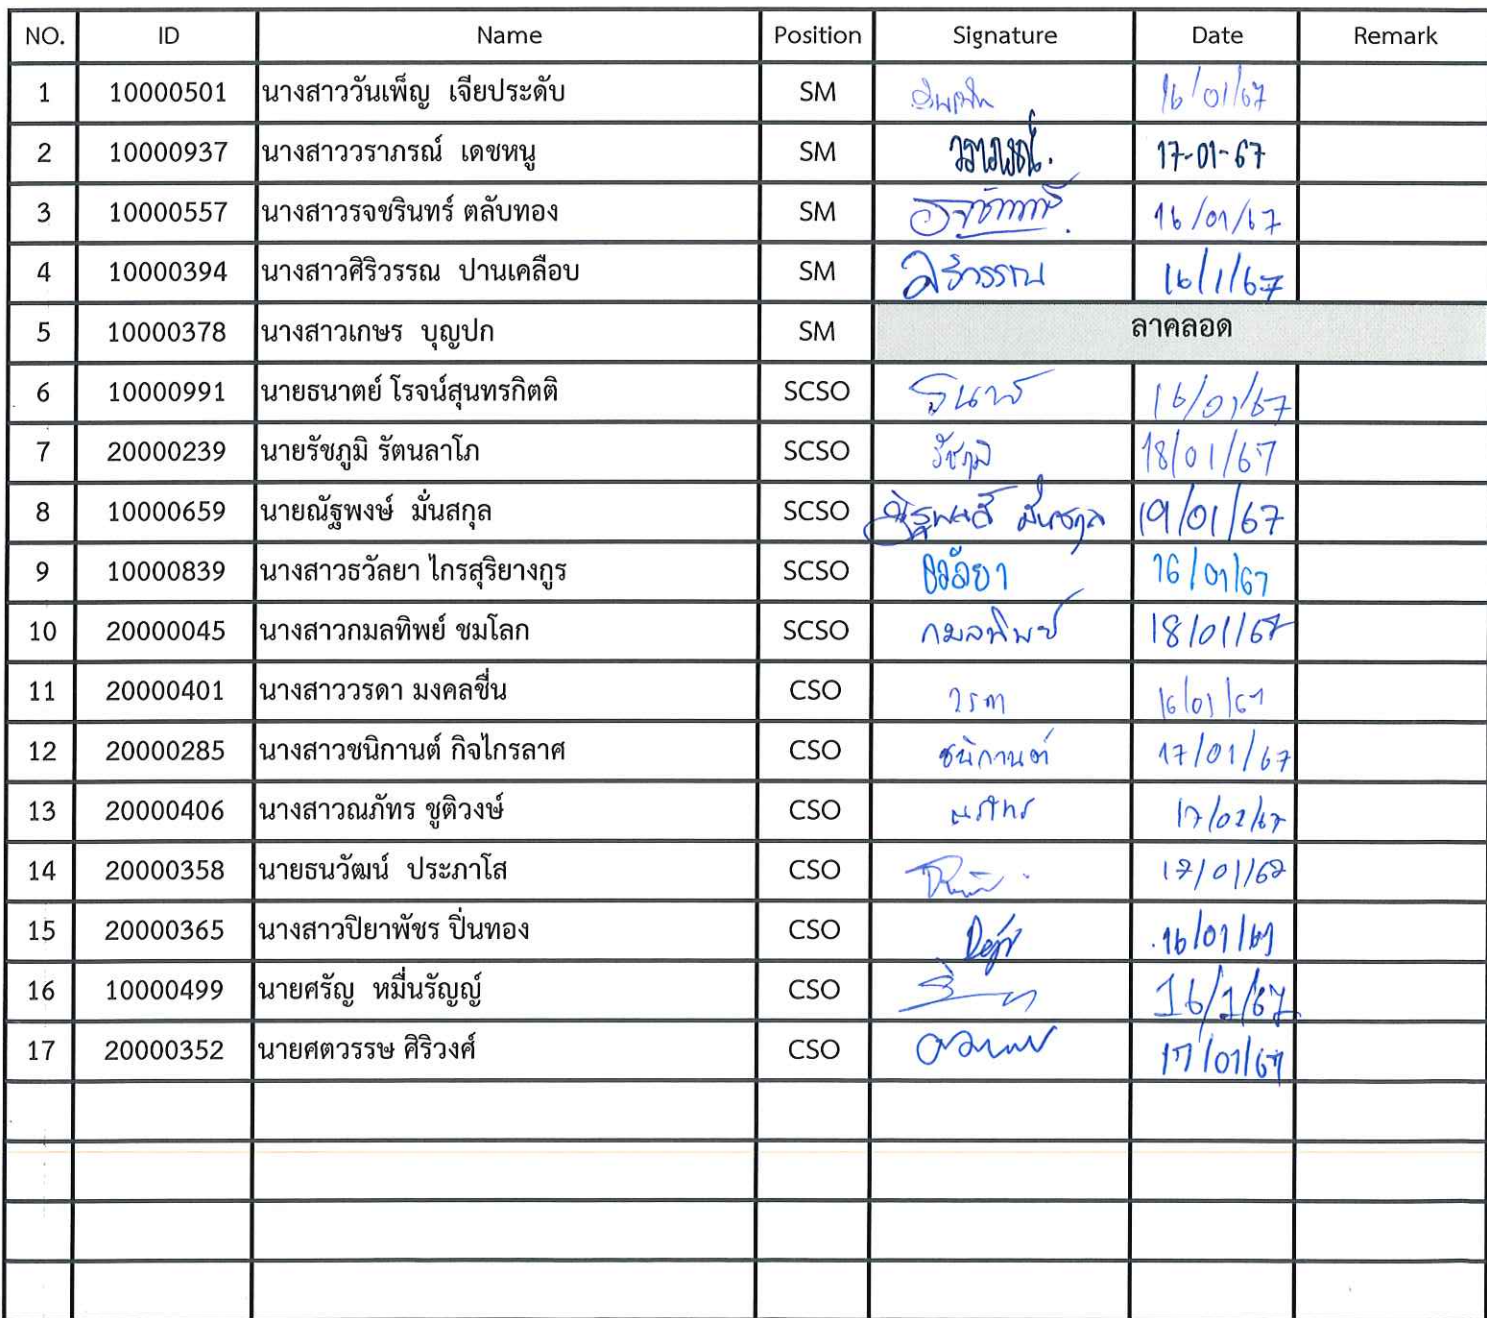 NO. ID Name Position Signature Date Remark
1 10000501 นางสาววันเพ็ญ เจียประดับ SM วันเพ็ญ 16/01/67
2 10000937 นางสาววราภรณ์ เดชหนู SM วราภรณ์. 17-01-67
3 10000557 นางสาวรจชรินทร์ ตลับทอง SM 16/01/67
4 10000394 นางสาวศิริวรรณ ปานเคลือบ SM ศิริวรรณ 16/1/67
5 10000378 นางสาวเกษร บุญปก SM ลาคลอด
6 10000991 นายธนาตย์ โรจน์สุนทรกิตติ SCSO 16/01/67
7 20000239 นายรัชภูมิ รัตนลาโภ SCSO รัชภูมิ 18/01/67
8 10000659 นายณัฐพงษ์ มั่นสกุล SCSO ณัฐพงษ์ มั่นสกุล 19/01/67
9 10000839 นางสาวธวัลยา ไกรสุริยางกูร SCSO ธวัลยา 16/01/67
10 20000045 นางสาวกมลทิพย์ ชมโลก SCSO กมลทิพย์ 18/01/67
11 20000401 นางสาววรดา มงคลชื่น CSO วรดา 16/01/67
12 20000285 นางสาวชนิกานต์ กิจไกรลาศ CSO ชนิกานต์ 17/01/67
13 20000406 นางสาวณภัทร ชูติวงษ์ CSO ณภัทร 17/01/67
14 20000358 นายธนวัฒน์ ประภาโส CSO 17/01/67
15 20000365 นางสาวปิยาพัชร ปิ่นทอง CSO 16/01/67
16 10000499 นายศรัญ หมื่นรัญญ์ CSO 16/1/67
17 20000352 นายศตวรรษ ศิริวงศ์ CSO 17/01/67